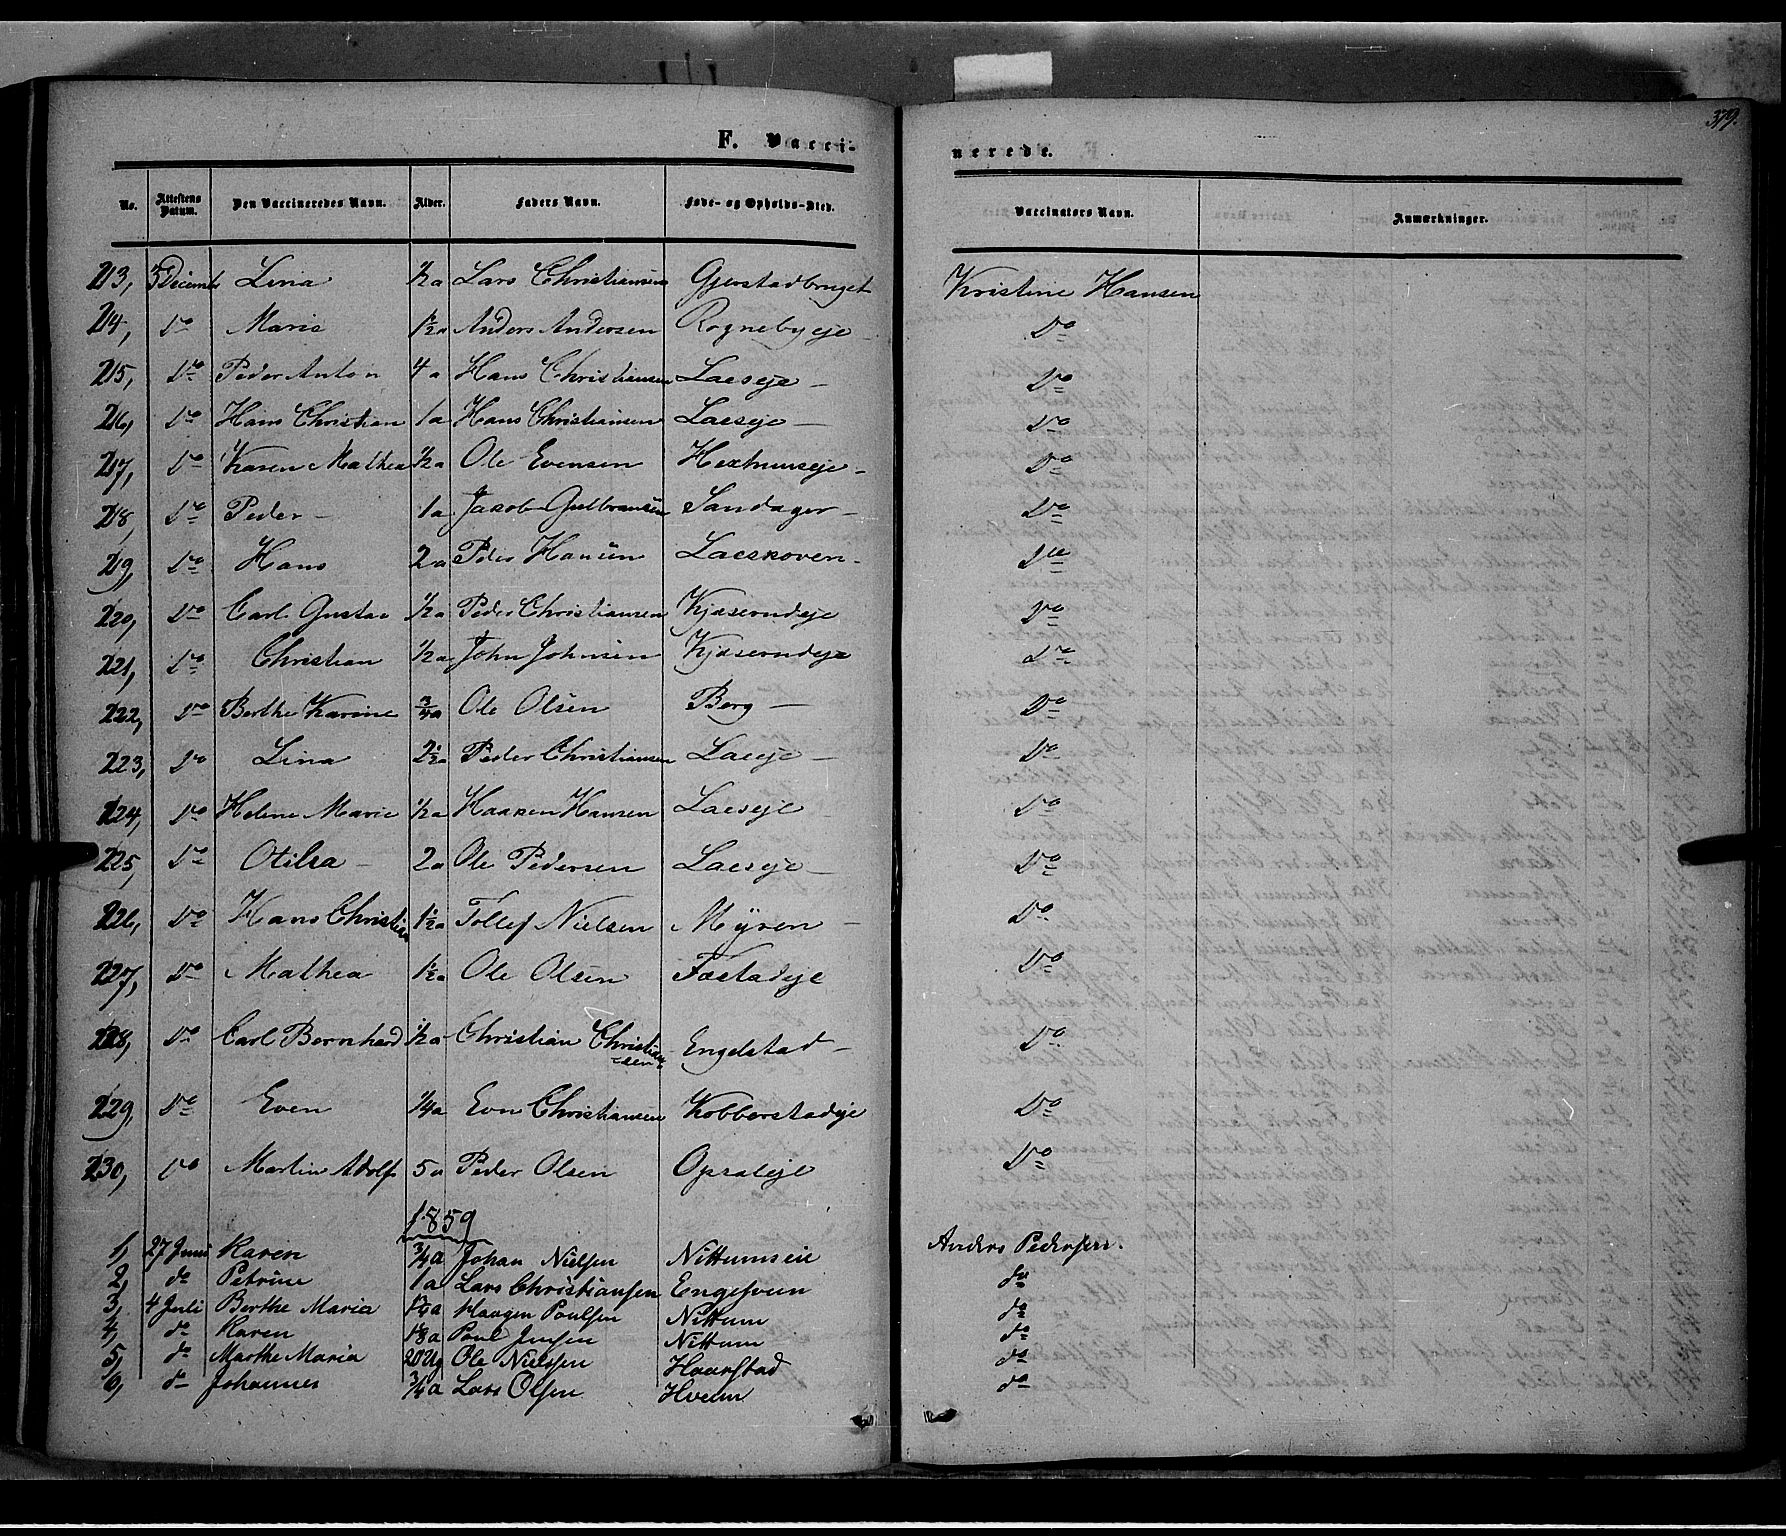 379.
F. Vacci-
nerede.
No. Attestens Datum. Den Vaccineredes Navn. Alder. Faders Navn. Føde- og Opholds-Sted. Vaccinators Navn. Anmærkninger.
213, 3 Decemb Lina ½a Lars Christiansen Gjerstadbruget Kristine Hansen
214, Do Marie 1½a Anders Andersen Rognebyeje Do
215, Do Peder Anton 4a Hans Christiansen Laeseje Do
216, Do Hans Christian 1a Hans Christiansen Laeseje Do
217, Do Karen Mathea ½a Ole Evensen Do
218, Do Peder 1a Jacob Gulbransen Sandager Do
219, Do Hans 2a Peder Hansen Laeskoven Do
220, Do Carl Gustav ½a Peder Christiansen Kjæserudeje Do
221, Do Christian ½a John Johnsen Kjæserudeje Do
222, Do Berthe Karine ¾a Ole Olsen Berg Do
223, Do Lina 2½a Peder Christiansen Laeseje Do
224, Do Helene Marie ½a Haaken Hansen Laeseje Do
225, Do Otilea 2a Ole Pedersen Laeseje Do
226, Do Hans Christian 1½a Tollef Nielsen Myren Do
227, Do Mathea 1½a Ole Olsen Fæstadeje Do
228, Do Carl Bernhard ½a Christian Christian=sen Engelstad Do
229, Do Even ¼a Even Christiansen Kobberstadeje Do
230, Do Martin Adolf 5a Peder Olsen Opsaleje Do
1859
1, 27 Juni Karen ¾a Johan Nielsen Nittumseie Anders Pedersen.
2, do Petrine 1a Lars Christiansen Engesveen do
3, 4 Juli Berthe Maria 1¼a Haagen Poulsen Nittum do
4, do Karen 1⅛a Poul Jensen Nittum do
5, do Marthe Maria 20 Ug Ole Nielsen Haarstad do
6, do Johannes ¾a Lars Olsen Hveem do